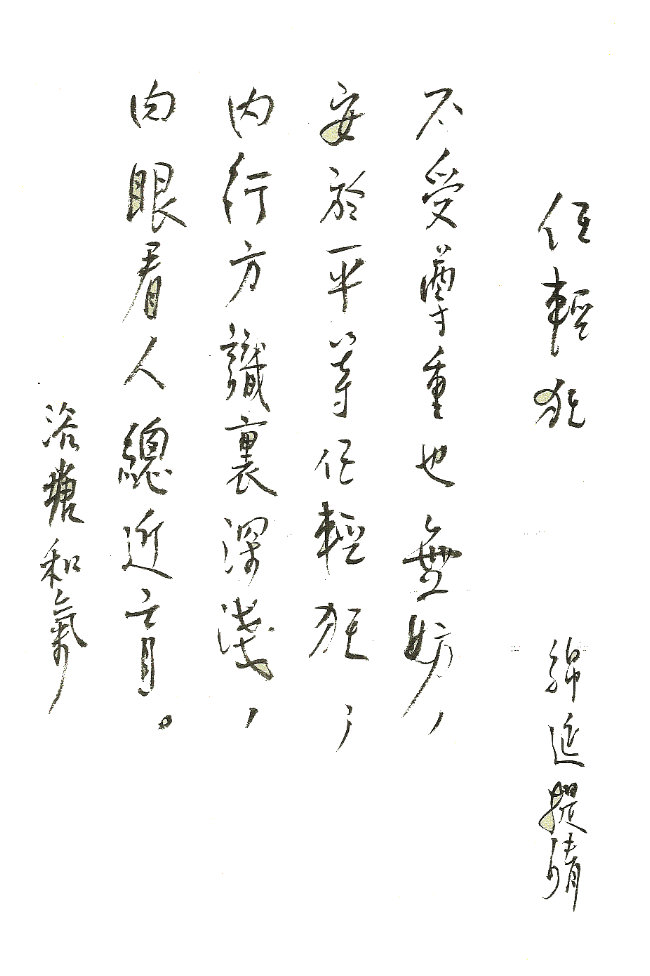 任輕狂
綿延提晴
不受尊重也無妨，
安於平等任輕狂；
內行方識裏深淺，
肉眼看人總近盲。
浴塘和氣